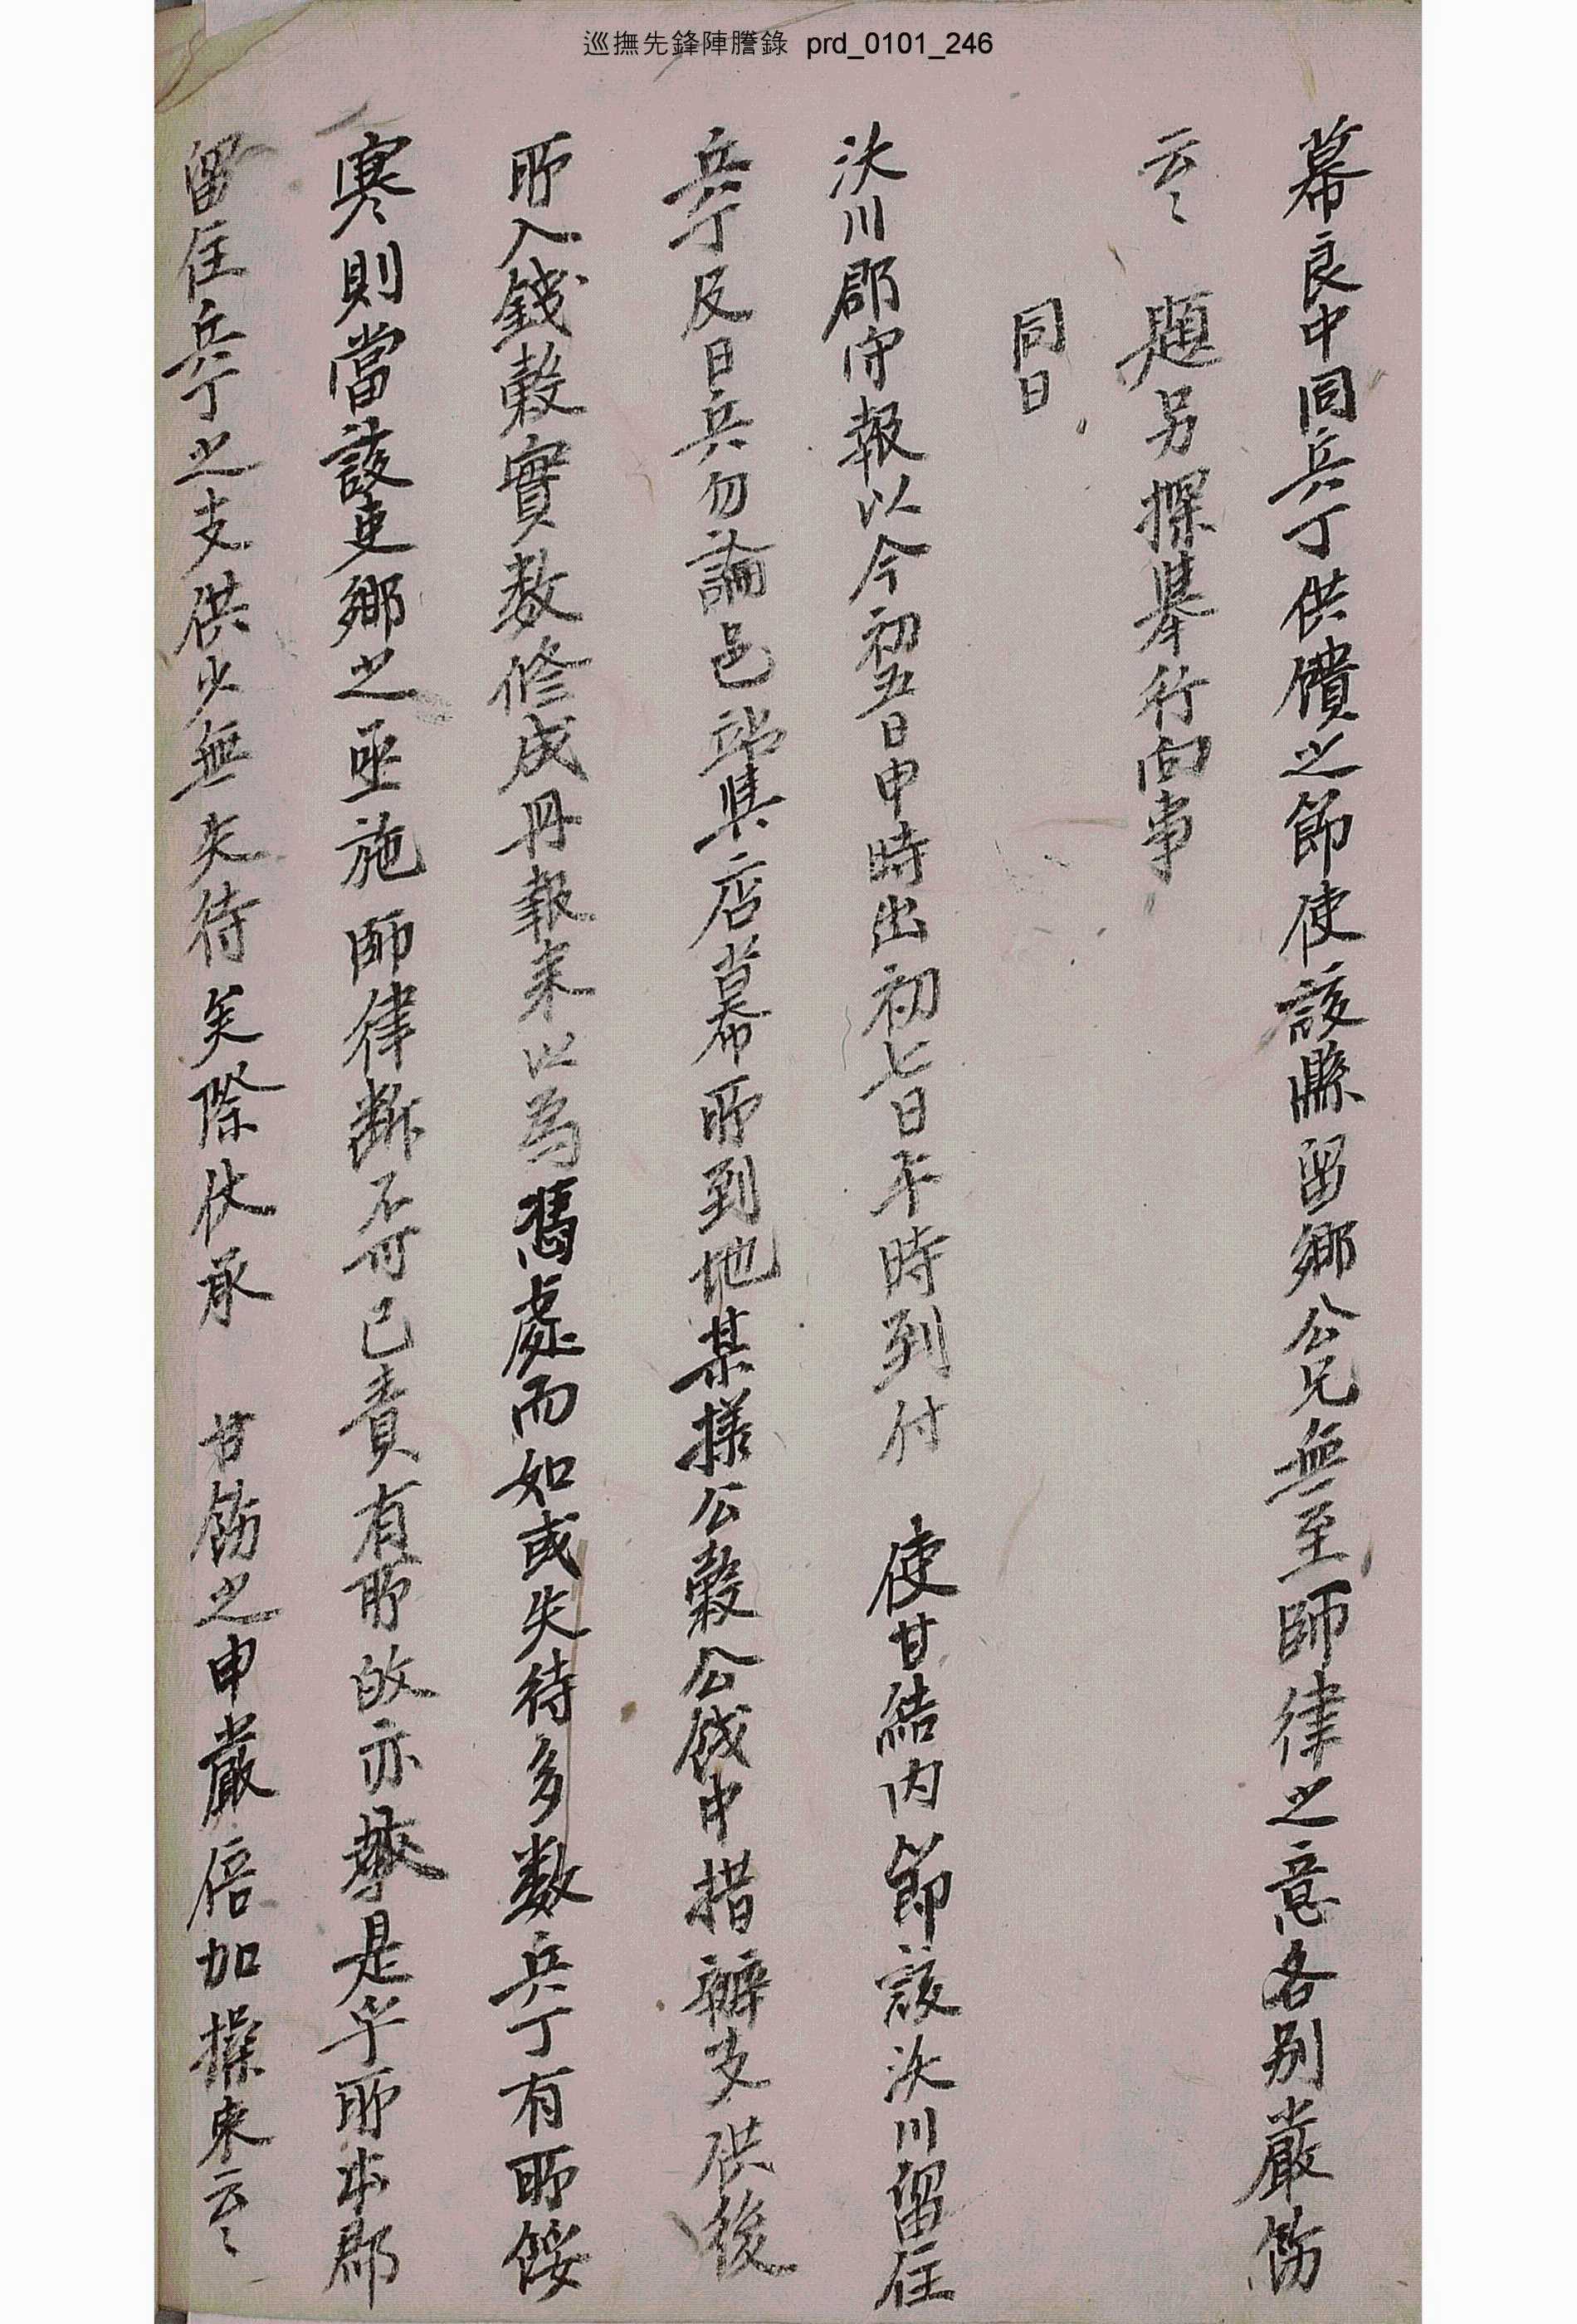 巡撫先鋒陣謄錄 prd_0101_246
幕良中同兵丁供饋之節使該縣留鄉公兄無至師律之意各別嚴飭
云〻 題另探擧行向事
同日
沃川郡守報以今初五日申時出初七日午時到付 使甘結內節該沃川留住
兵丁及日兵勿論邑站與店幕所到地某樣公穀公錢中措辦支供後
所入錢穀實數修成冊報來以為憑處而如或失待多數兵丁有所餒
寒則當該吏鄉之亟施師律斷不可已責有所的亦敎是乎所本郡
留住兵丁之支供少無失待矣際伏承 甘飭之申嚴倍加操束云〻